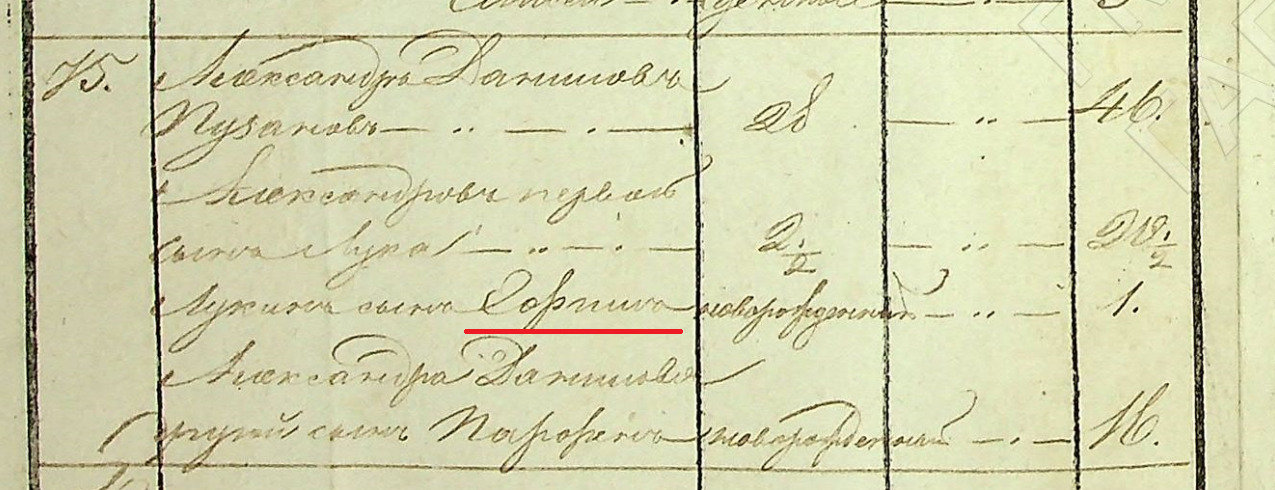 75. Александръ Даниловъ
Пузановъ — „ — . — 28 — „ — 46.
Александровъ первой
сынъ Лука — „ — . — 2 1/2 — „ — 20 1/2
Лукинъ сынъ новорожденный — „ — 1.
Александра Данилова
другой сынъ новорожденный — . — 16.